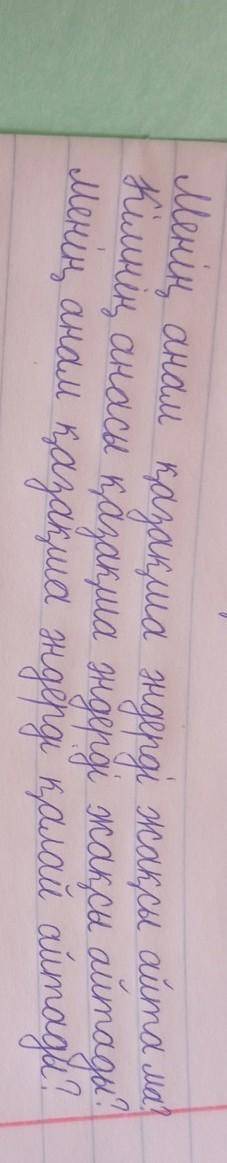 Менің анам қазақша әндерді жақсы айта ма?
Кімнің анасы қазақша әндерді жақсы айтады?
Менің анам қазақша әндерді қалай айтады?